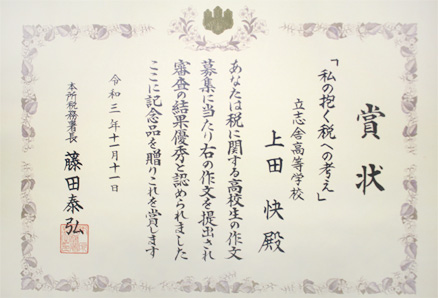 賞状
「私の抱く税への考え」
立志舎高等学校
上田 快 殿
あなたは税に関する高校生の作文
募集に当たり右の作文を提出され
審査の結果優秀と認められました
ここに記念品を贈りこれを賞します
令和三年十一月十一日
本所税務署長 藤田泰弘